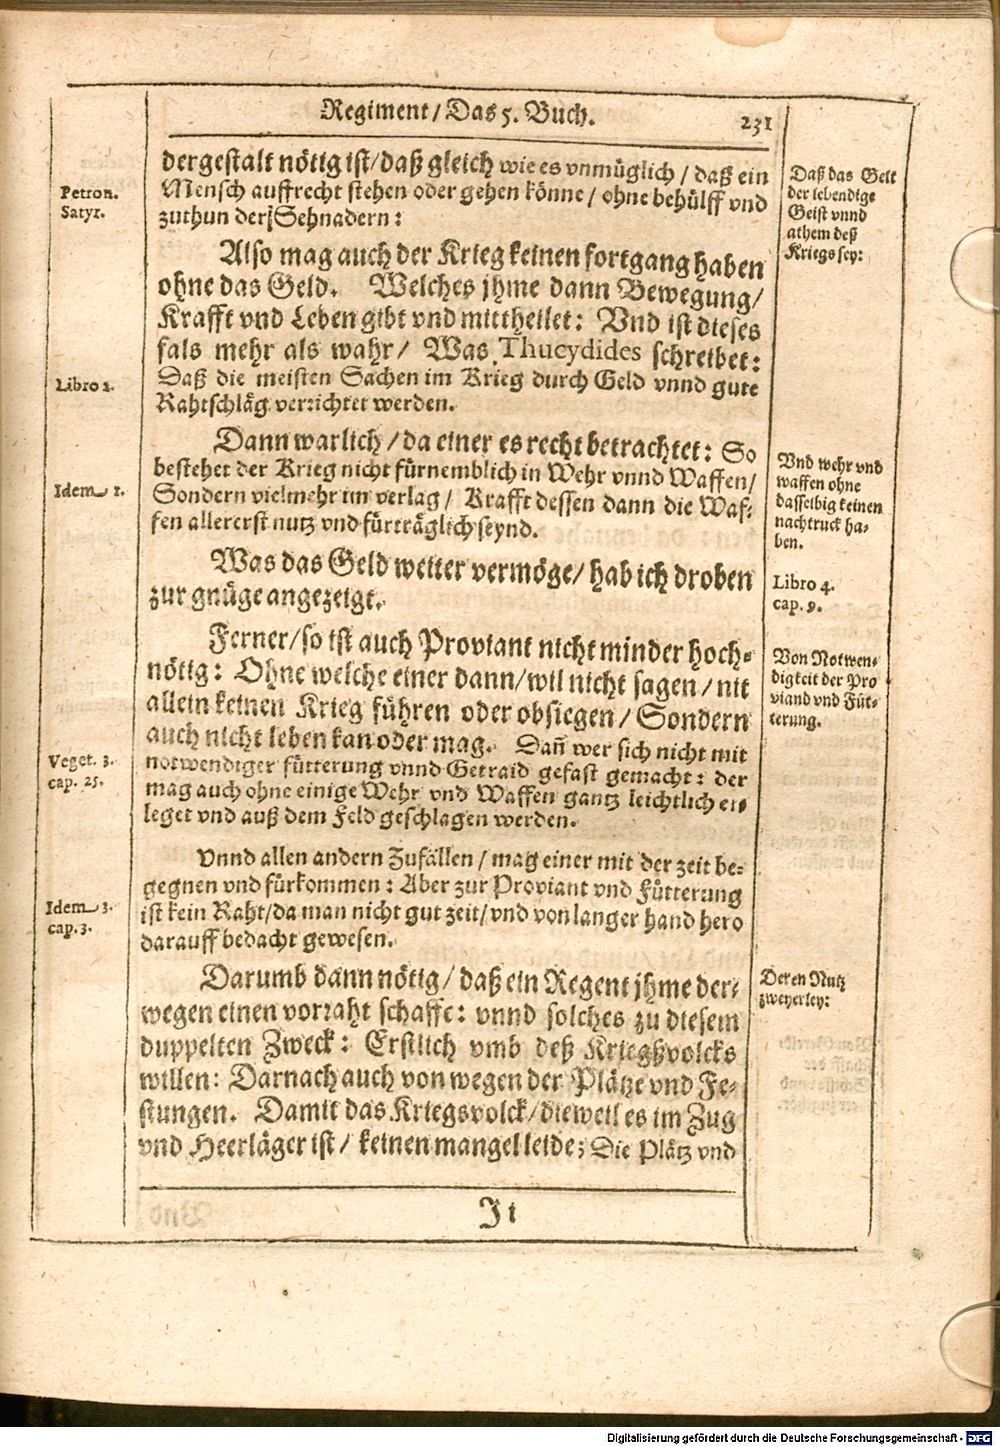 Regiment / Das 5. Buch.
231
dergestalt nötig ist / daß gleich wie es vnmüglich / daß ein
Mensch auffrecht stehen oder gehen könne / ohne behülff vnd
zuthun der Sehnadern:
Petron.
Satyr.
Daß das Gelt
der lebendige
Geist vnnd
athem deß
Kriegs sey:
Also mag auch der Krieg keinen fortgang haben
ohne das Geld. Welches jhme dann Bewegung /
Krafft vnd Leben gibt vnd mittheilet: Vnd ist dieses
fals mehr als wahr / Was Thucydides schreibet:
Daß die meisten Sachen im Krieg durch Geld vnnd gute
Rahtschläg verrichtet werden.
Libro 2.
Dann warlich / da einer es recht betrachtet: So
bestehet der Krieg nicht fürnemblich in Wehr vnnd Waffen /
Sondern vielmehr im verlag / Krafft dessen dann die Waf-
fen allererst nutz vnd fürträglich seynd.
Idem 1.
Vnd wehr vnd
waffen ohne
dasselbig keinen
nachtruck ha-
ben.
Was das Geld weiter vermöge / hab ich droben
zur gnüge angezeigt.
Libro 4.
cap. 9.
Ferner / so ist auch Proviant nicht minder hoch-
nötig: Ohne welche einer dann / wil nicht sagen / nit
allein keinen Krieg führen oder obsiegen / Sondern
auch nicht leben kan oder mag. Dañ wer sich nicht mit
notwendiger fütterung vnnd Getraid gefast gemacht: der
mag auch ohne einige Wehr vnd Waffen gantz leichtlich er-
leget vnd auß dem Feld geschlagen werden.
Von Notwen-
digkeit der Pro
viand vnd Füt-
terung.
Veget. 3.
cap. 25.
Vnnd allen andern Zufällen / mag einer mit der zeit be-
gegnen vnd fürkommen: Aber zur Proviant vnd Fütterung
ist kein Raht / da man nicht gut zeit / vnd von langer hand hero
darauff bedacht gewesen.
Idem 3.
cap. 3.
Darumb dann nötig / daß ein Regent jhme der-
wegen einen vorraht schaffe: vnnd solches zu diesem
duppelten Zweck: Erstlich vmb deß Kriegßvolcks
willen: Darnach auch von wegen der Plätze vnd Fe-
stungen. Damit das Kriegsvolck / dieweil es im Zug
vnd Heerläger ist / keinen mangel leide; Die Plätz vnd
Deren Nutz
zweyerley:
Ji
Digitalisierung gefördert durch die Deutsche Forschungsgemeinschaft - DFG